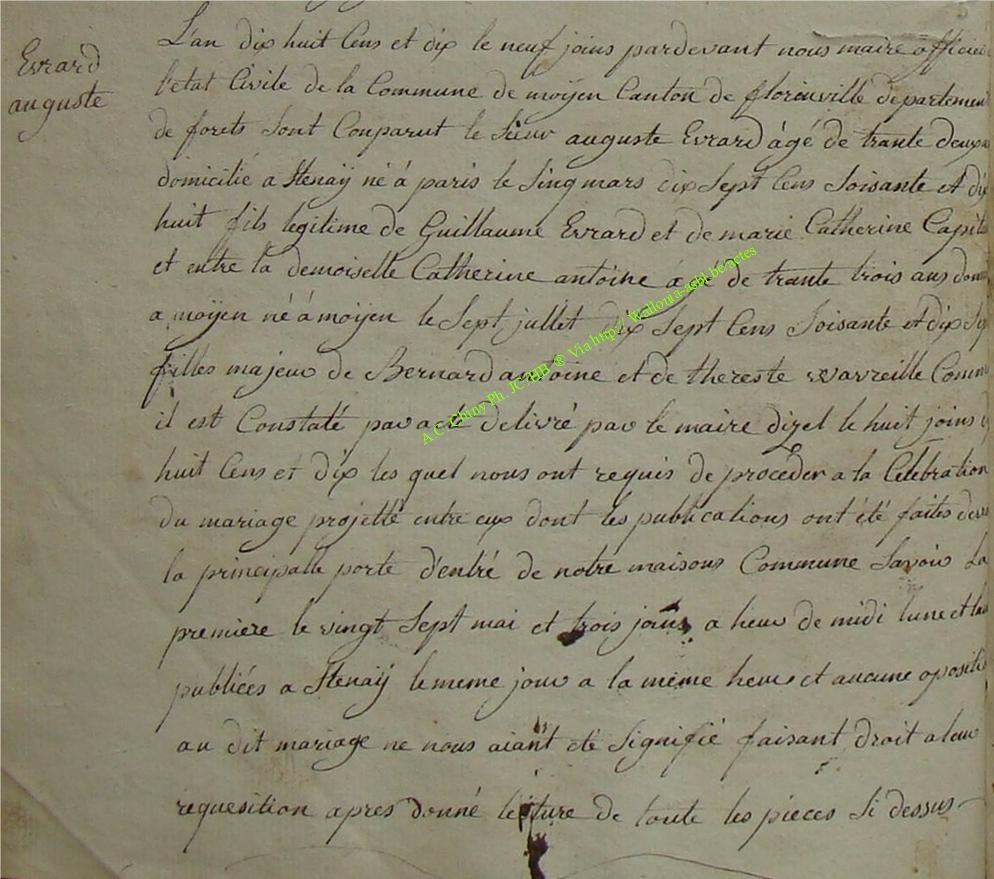 Evrard
auguste
L'an dix huit Cens et dix le neuf joins pardevant nous maire officier
l'etat Civile de la Commune de moÿen Canton de florenville departement
de forets Sont Conparut le Sieur auguste Evrard âgé de trante deux
domicilié a Stenaÿ né á paris le Sinq mars dix Sept Cens Soisante et dix
huit fils legitime de Guillaume Evrard et de marie Catherine
et entre la demoiselle Catherine antoine á gé de trante trois ans
a moÿen né á moÿen le Sept jullet dix Sept Cens Soisante et dix
filles majeur de Bernard antoine et de thereste wavreille Comm
il est Constaté par acte delivré par le maire dizel le huit joins
huit Cens et dix les quel nous ont requis de procéder a la Célébration
du mariage projetté entre eux dont les publications ont été faites
la principalle porte d'entré de notre maisons Commune Savoir La
premiere le vingt Sept mai et trois joins a heur de midi lune et
publiées a Stenaÿ le meme jour a la même heur et aucune
au dit mariage ne nous aiant été Signifié faisant droit a leur
requesition apres donné lecture de toute les pieces Si dessus
A.C. Chiny Ph. JCHB ® Via http// Wallonia-asbl.be/actes